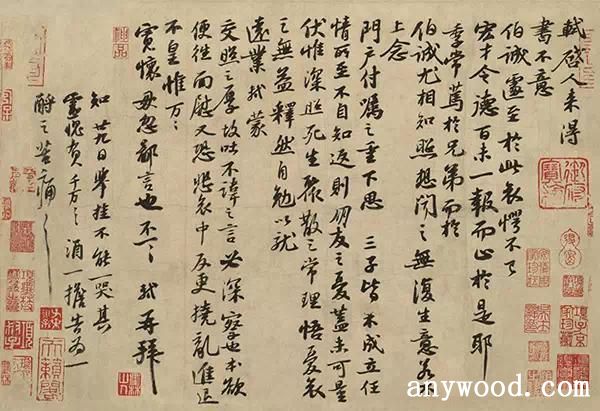 軾啓人来得
書不意
伯誠遽至於此哀愕不已
宏才令德百未一報而止於是耶
季常篤於兄弟而於
伯誠尤相知照想聞之無復生意若不
上念
門户付囑之重下思三子皆不成立任
情所至不自知返則朋友之憂蓋未可量
伏惟深照死生聚散之常理悟憂哀
之無益釋然自勉以就
遠業軾蒙
交照之厚故吐不諱之言必深察也本欲
便往面慰又恐悲哀中反更撓亂進退
不皇惟万〻
寬懷毋忽鄙言也不一一軾再拜
知廿九日舉挂不能一哭其
靈愧負千万〻〻酒一擔告為一
酹之苦痛〻〻
anywood.com